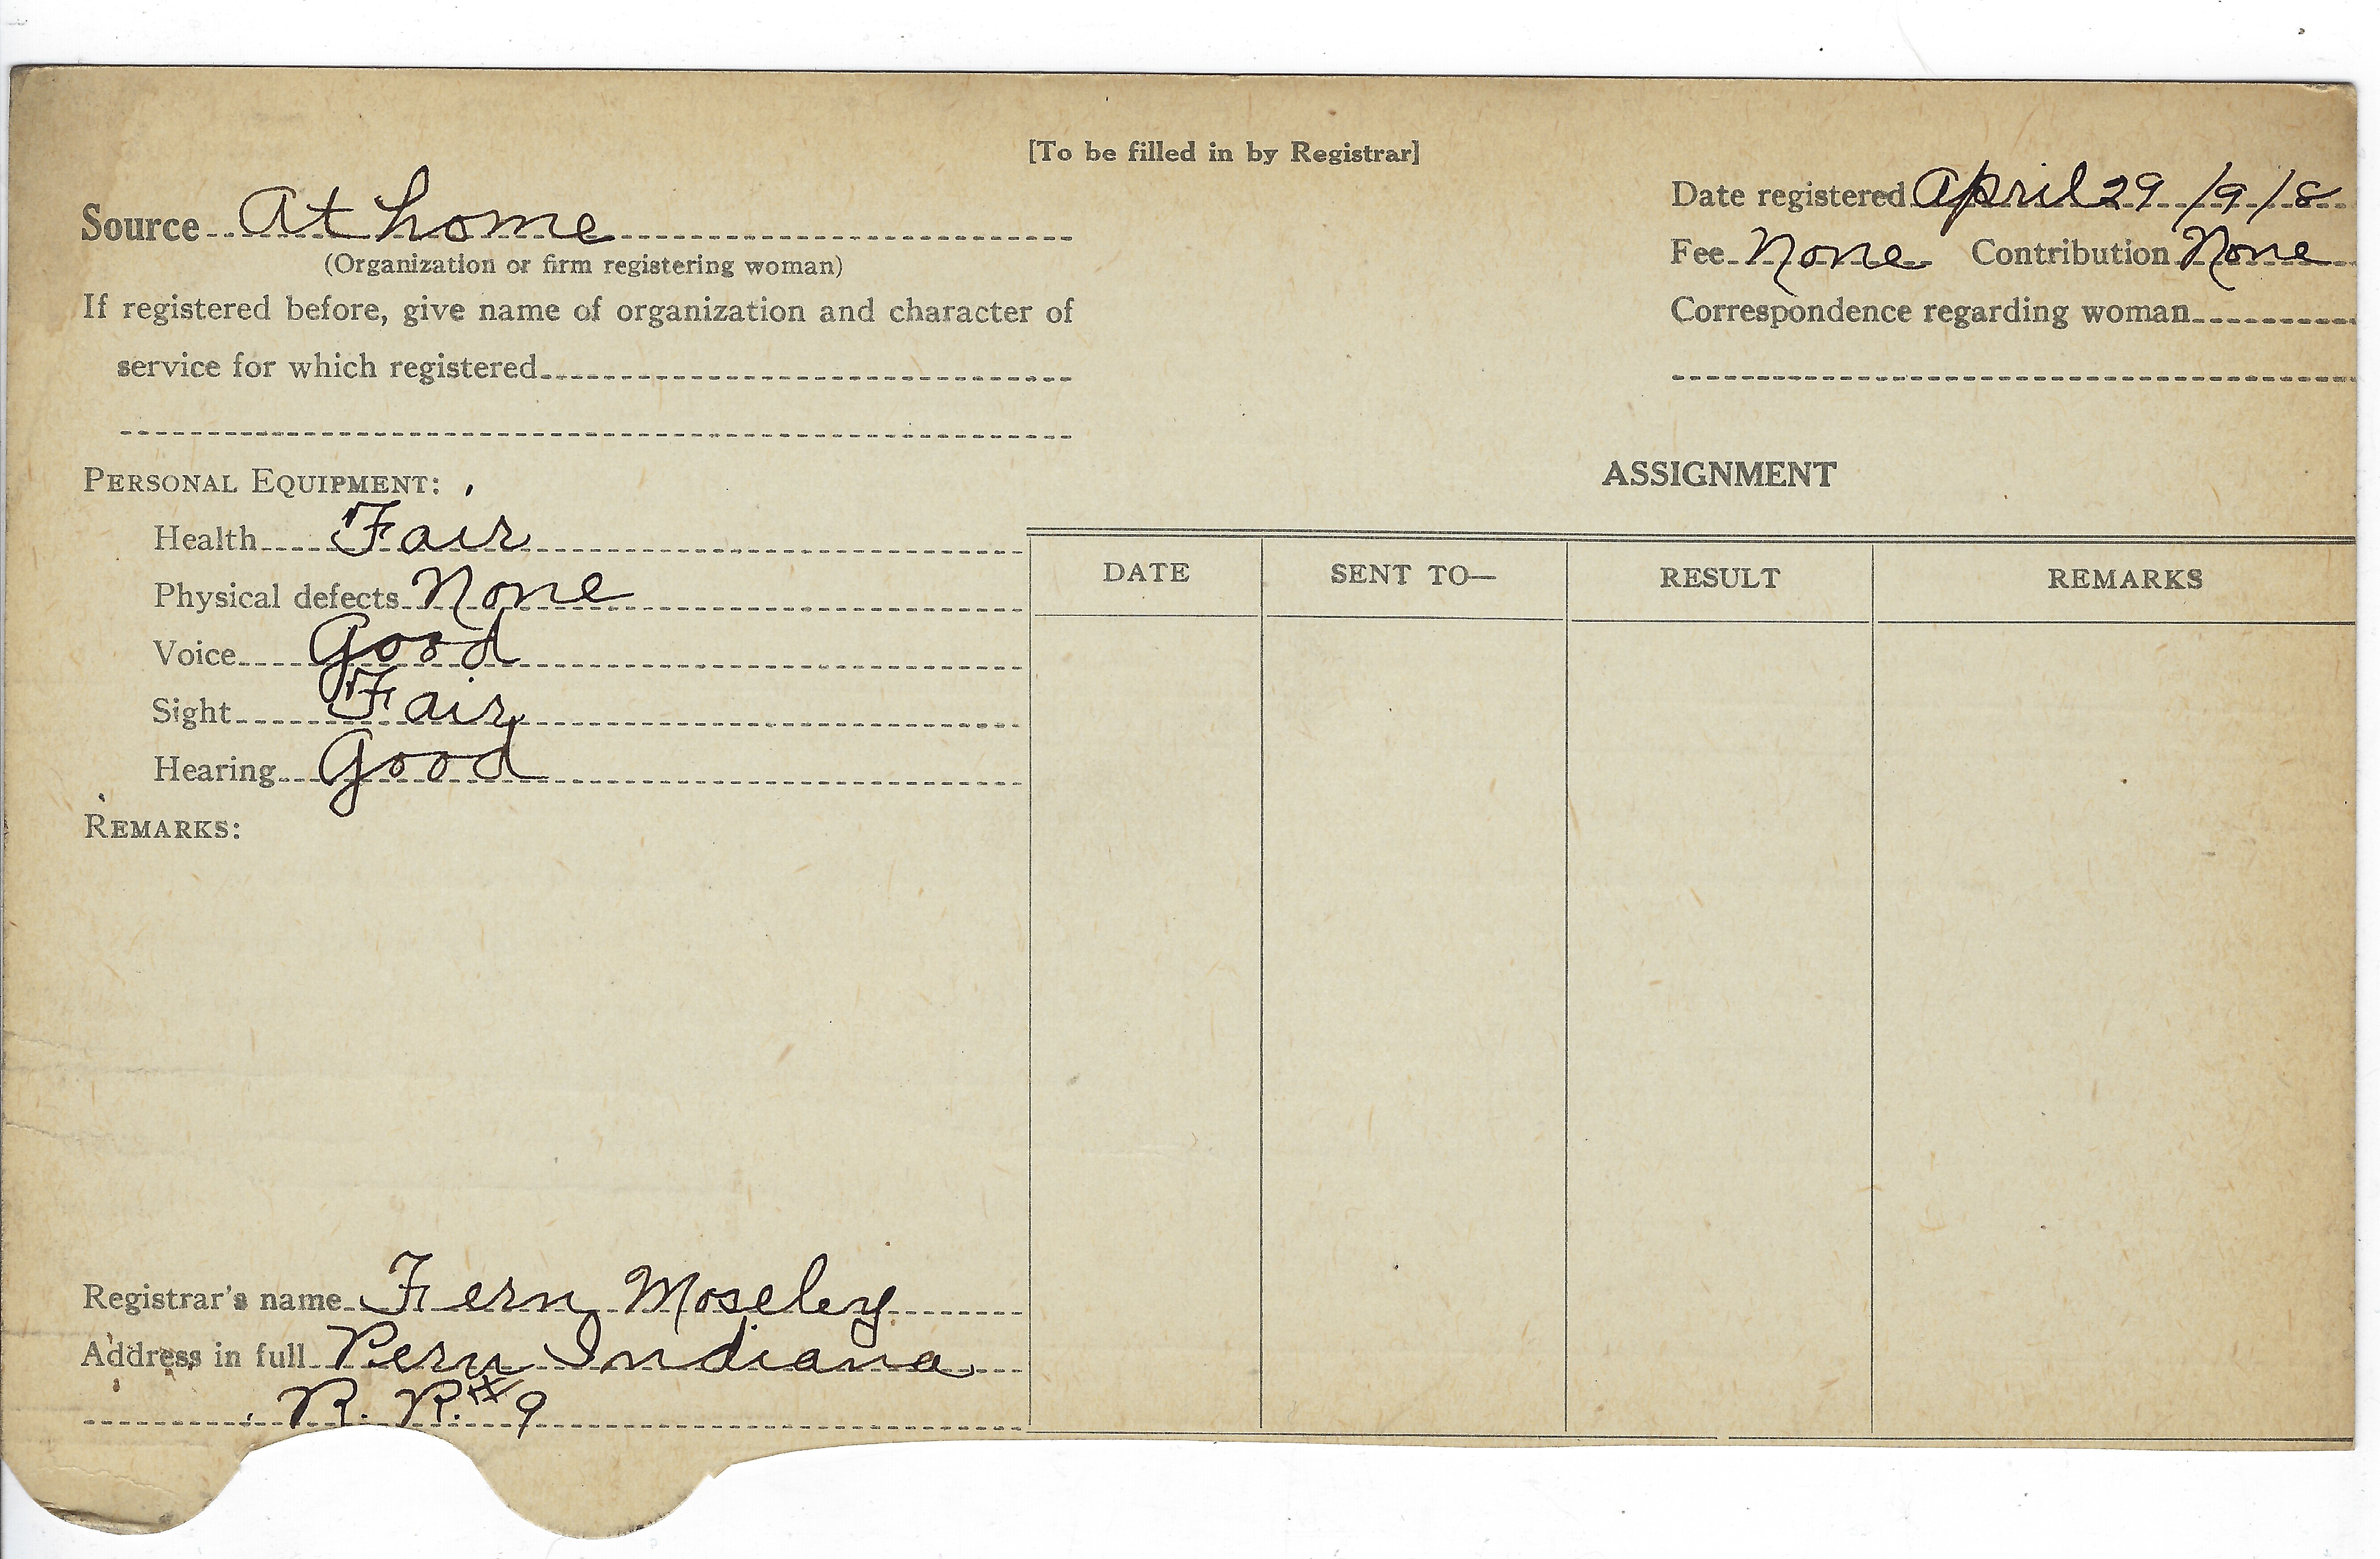 [To be filled in by Registrar]
Source At home
(Organization or firm registering woman)
If registered before, give name of organization and character of
service for which registered
Date registered April 29 1918
Fee None Contribution None
Correspondence regarding woman
PERSONAL EQUIPMENT:
Health Fair
Physical defects None
Voice Good
Sight Fair
Hearing Good
REMARKS:
ASSIGNMENT
DATE SENT TO— RESULT REMARKS
Registrar's name Fern Moseley
Address in full Peru Indiana
R. R. #9